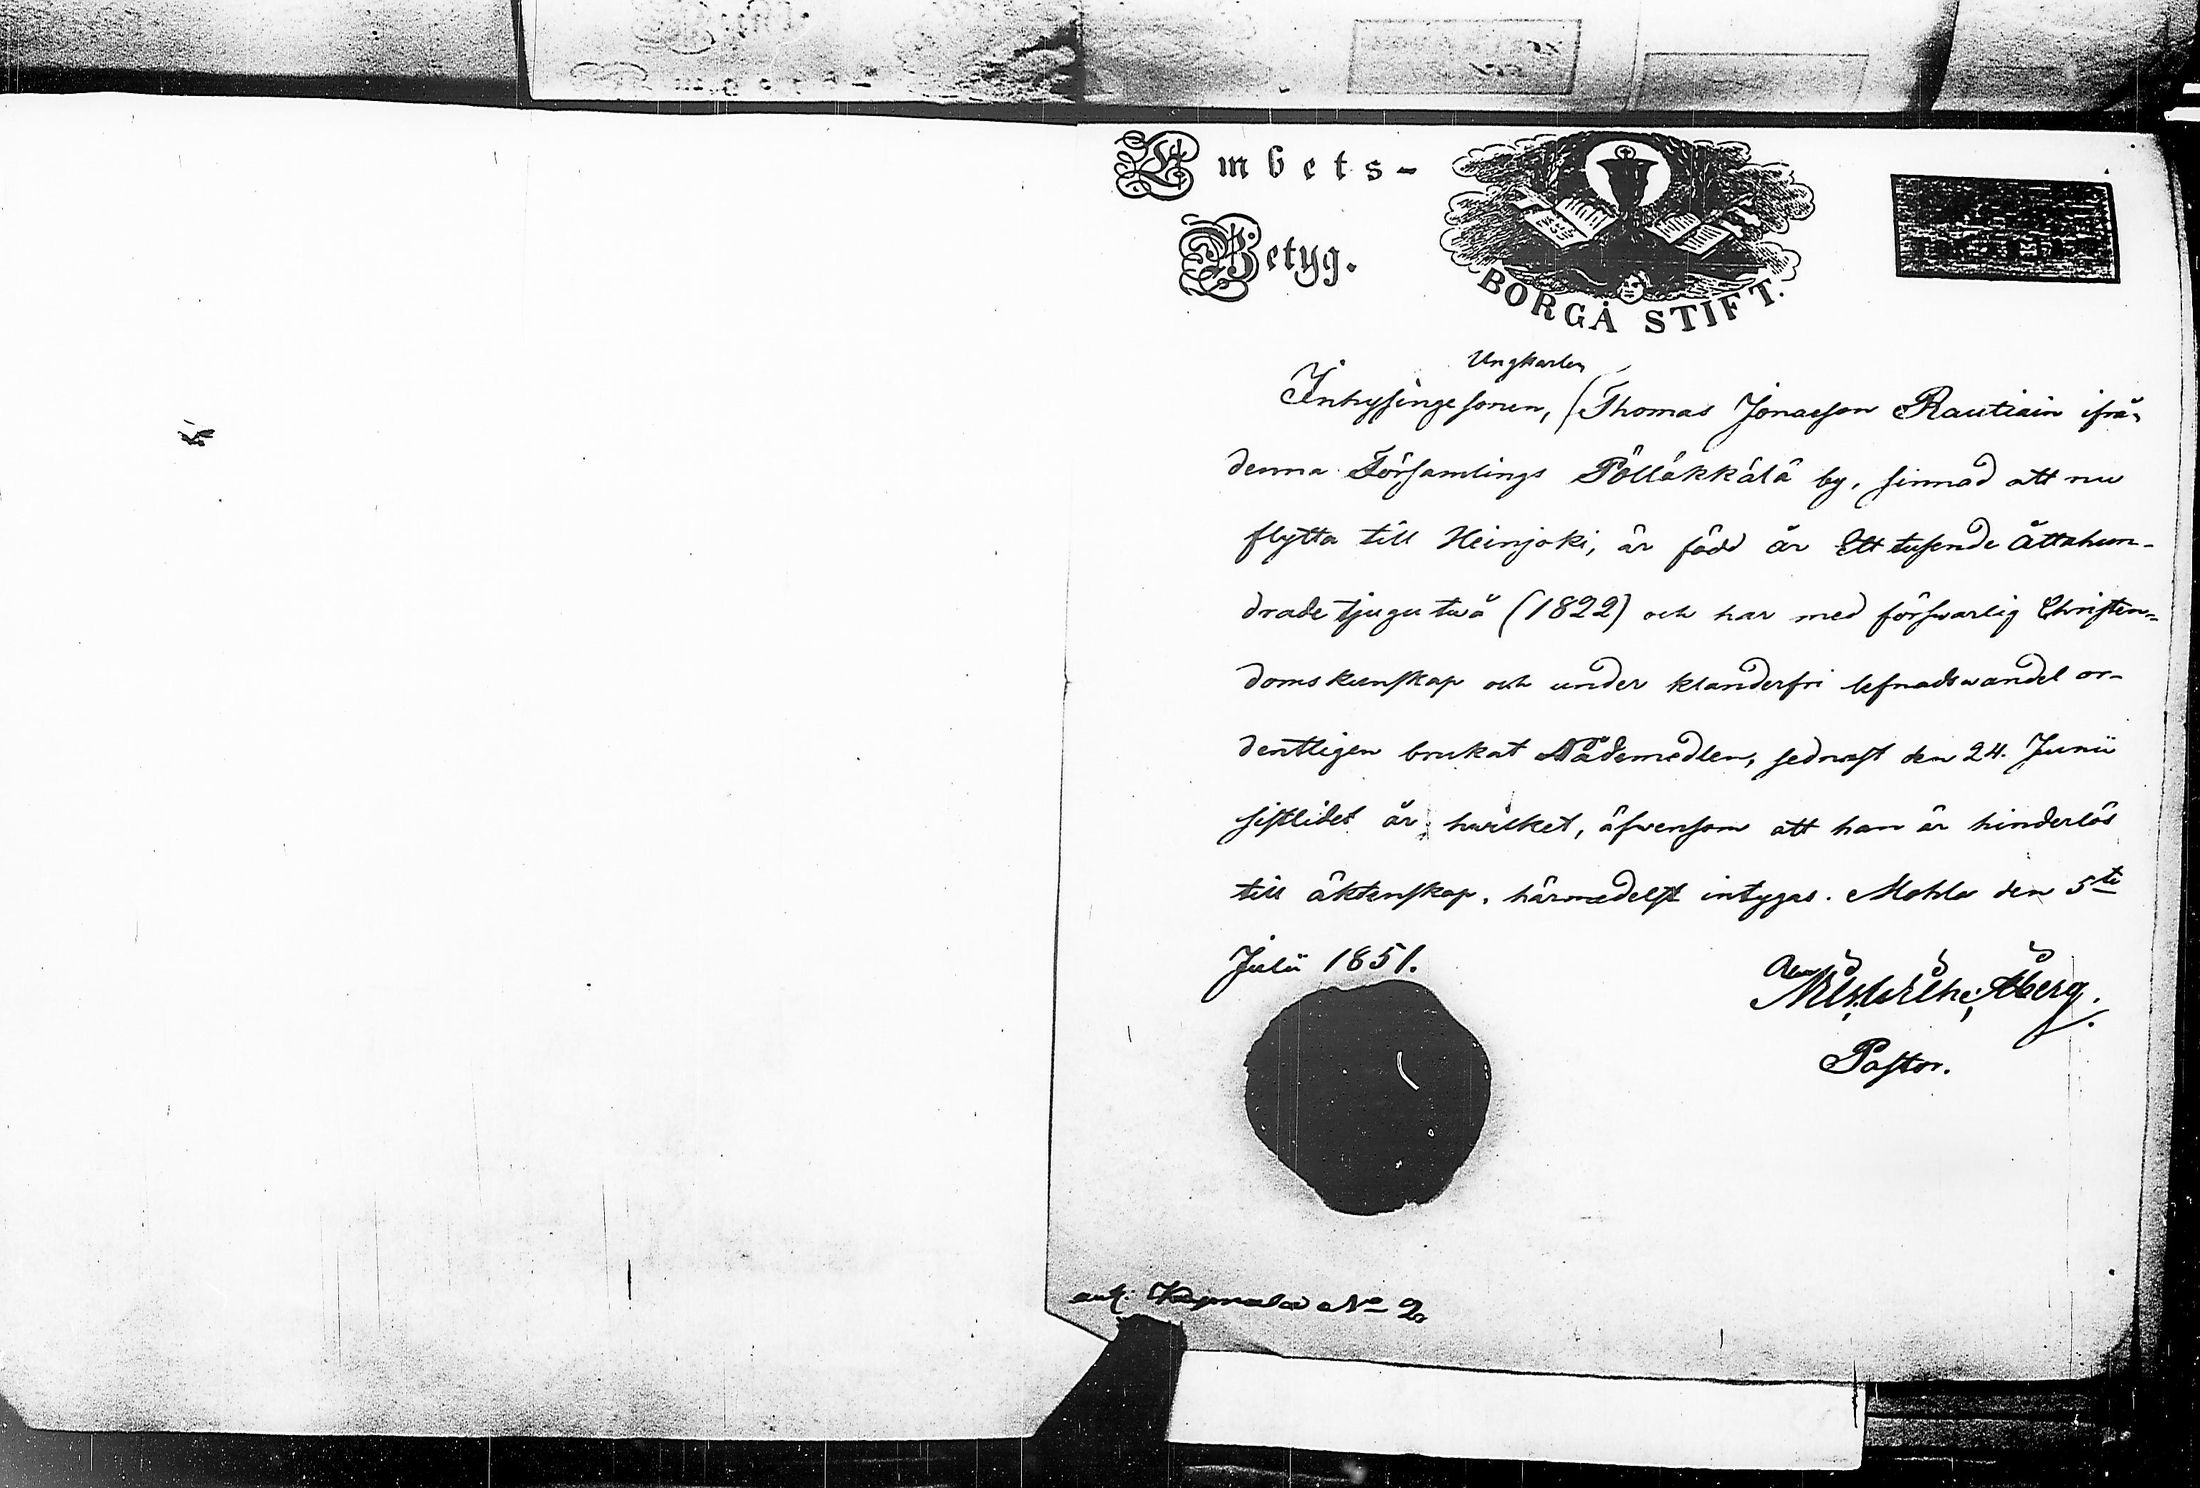 Embets-
Betyg.
BORGÅ STIFT.
Ungkarlen
Inhysingesonen, (Thomas Jonasson Rautiain ifrån
denna Församlings Pölläkkälä by, sinnad att nu
flytta till Heinjoki, är född år Ett tusende Åttahun-
drade tjugu två (1822) och har med förswarlig Christen-
doms kunskap och under klanderfri lefnadswandel or-
dentligen brukat Nådemedlen, sednast den 24. Junii
sistlidet år, hwilket, äfwensom att han är hinderlös
till äktenskap, härmedelst intygas. Mohla den 5te
Julii 1851.
Åberg.
Pastor.
No 2